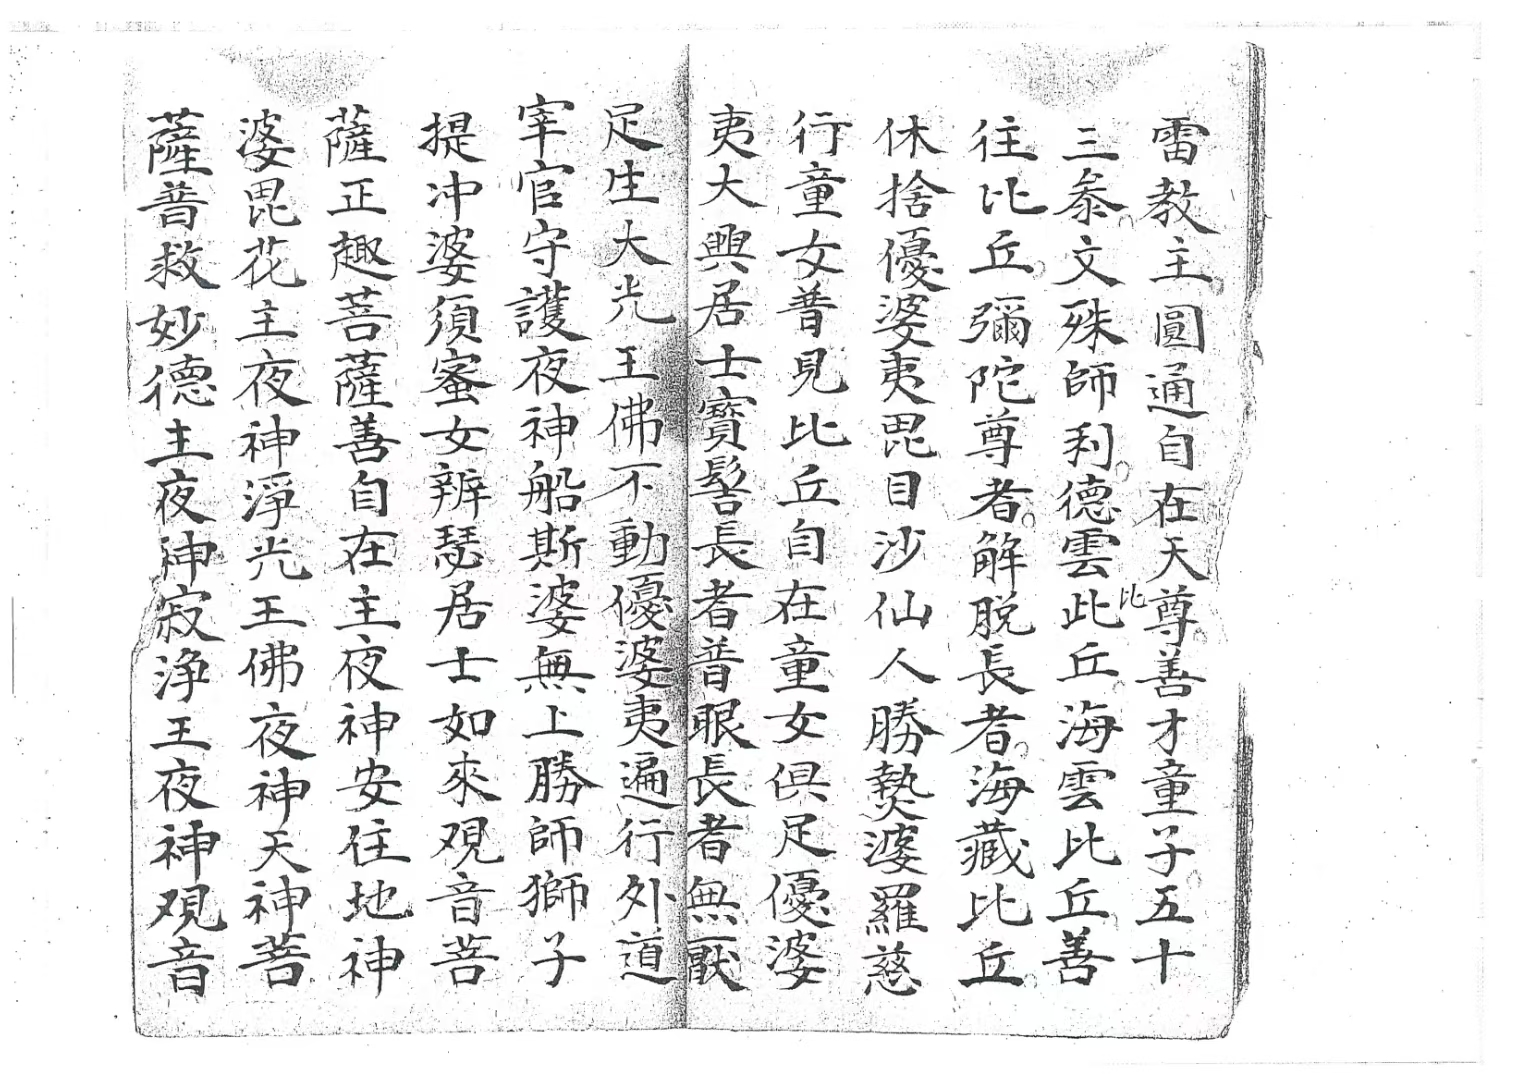 雷教主圓通自在天尊善才童子五十
三叅文殊師利德雲此丘海雲比丘善
比
往比丘彌陀尊者解脱長者海藏比丘
休捨優婆夷毘目沙仙人勝𤍠婆羅慈
行童女普見比丘自在童女俱足優婆
夷大興居士寶髻長者普眼長者無厭
足生大光王佛不動優婆夷遍行外道
宰官守護夜神船斯婆無上勝師獅子
提冲婆須蜜女辨瑟居士如來观音菩
薩正趣菩薩善自在主夜神安住地神
婆毘花主夜神淨光王佛夜神天神菩
薩普救妙德主夜神寂浄王夜神观音